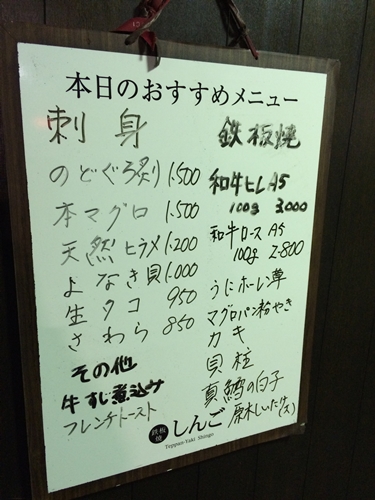 本日のおすすめメニュー
刺身
のどぐろ炙り 1.500
本マグロ 1.500
天然ヒラメ 1.200
よなき貝 1.000
生タコ 950
さわら 850
その他
牛すじ煮込み
フレンチトースト
鉄板焼
和牛ヒレA5
100g 3.000
和牛ロースA5
100g 2.800
うにホーレン草
マグロパン粉やき
カキ
貝柱
真鱈の白子
原木しいたけ(大)
鉄板焼 しんご
Teppan-Yaki Shingo